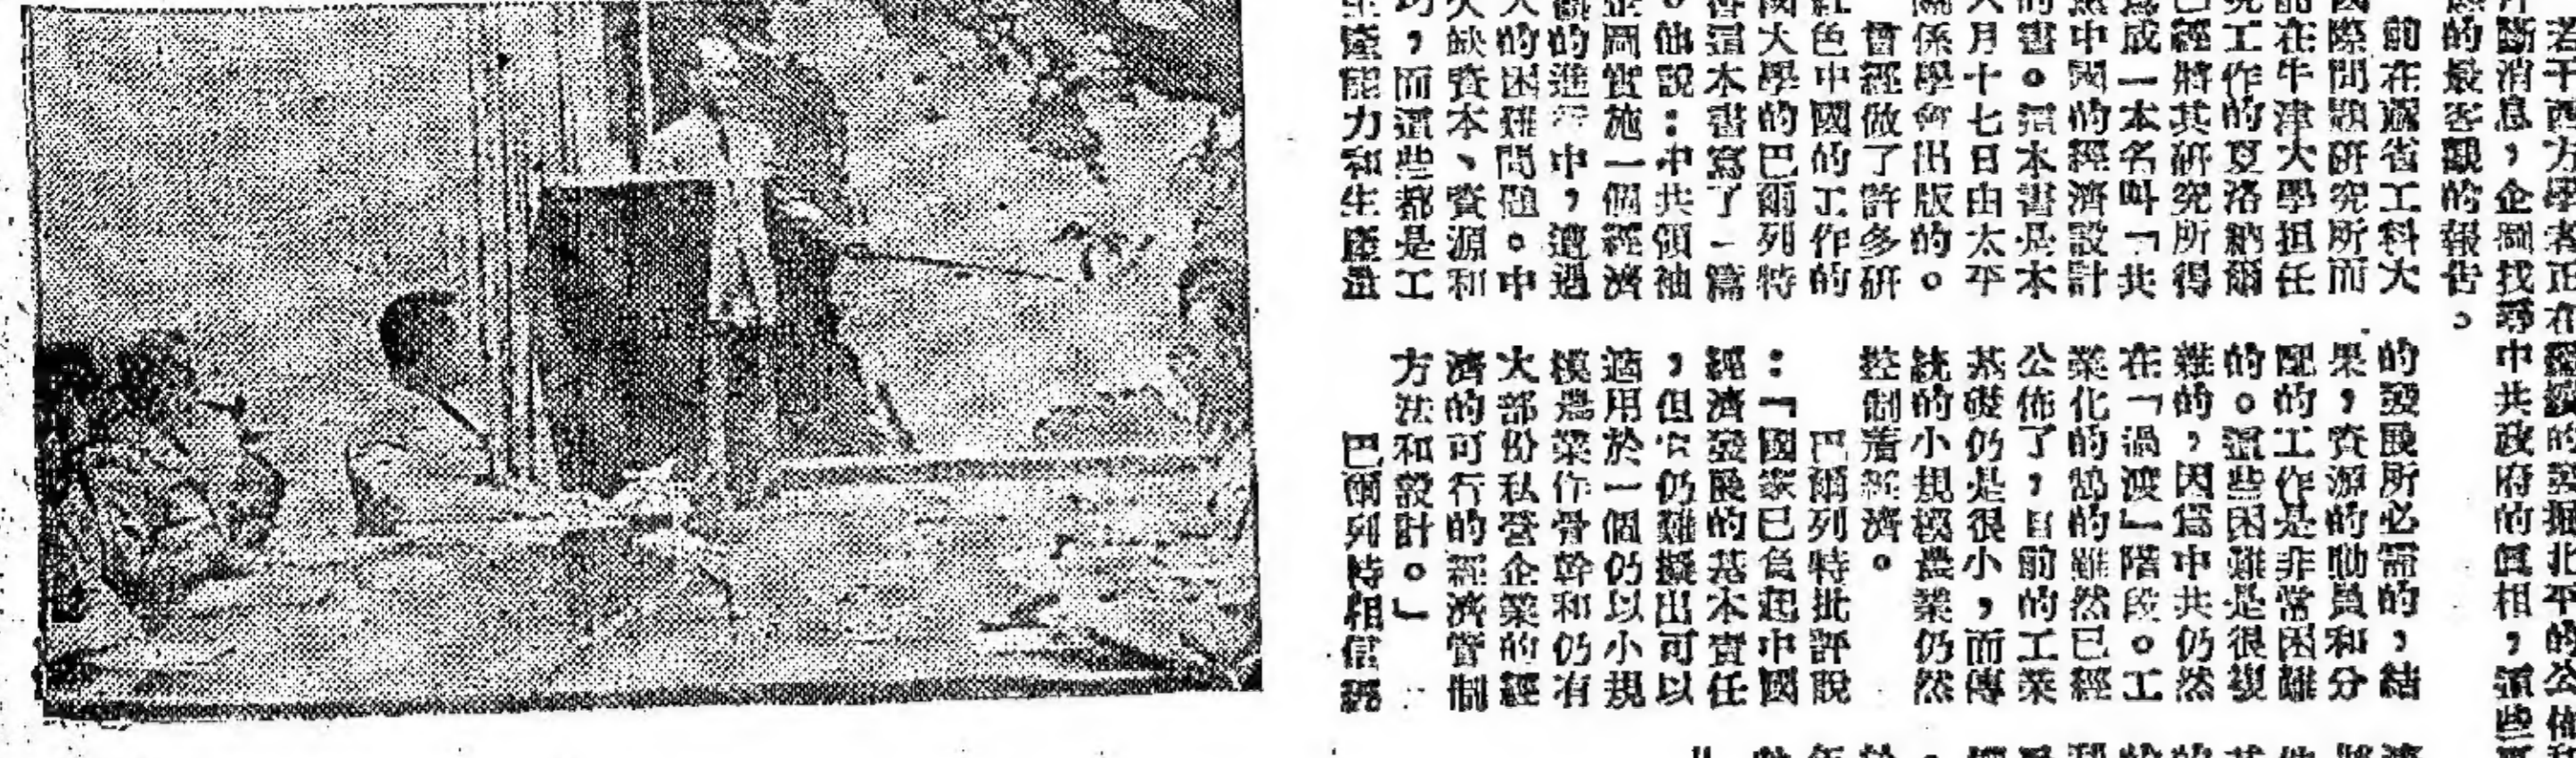 若干西方學者正在
斷消息，企圖找尋中共政府的眞相，這些
的最客觀的報告。
前在麻省工科大
國際問題研究所而
在牛津大學担任
究工作的夏洛納爾
已經將其研究所得
寫成一本名叫「共
中國的經濟設計
的書。這本書是本
八月十七日由太平
關係學會出版的。
曾經做了許多研
紅色中國的工作的
國大學的巴爾列特
這本書寫了一篇
。他說：中共領袖
企圖實施一個經濟
的進行中，遭遇
大的困難問題。中
缺資本、資源和
，而這些都是工
生產能力和生產量
的發展所必需的，結
果，資源的動員和分
配的工作是非常困難
的。這些困難是很複
雜的，因爲中共仍然
在「過渡」階段。工
業化的鵠的雖然已經
公佈了，目前的工業
基礎仍是很小，而傳
統的小規模農業仍然
控制着經濟。
巴爾列特批評說
：「國家已負起中國
經濟發展的基本責任
，但它仍難擬出可以
適用於一個仍以小規
模農業作骨幹和仍有
大部份私營企業的經
濟的可行的經濟管制
方法和設計。」
巴爾列特相信經